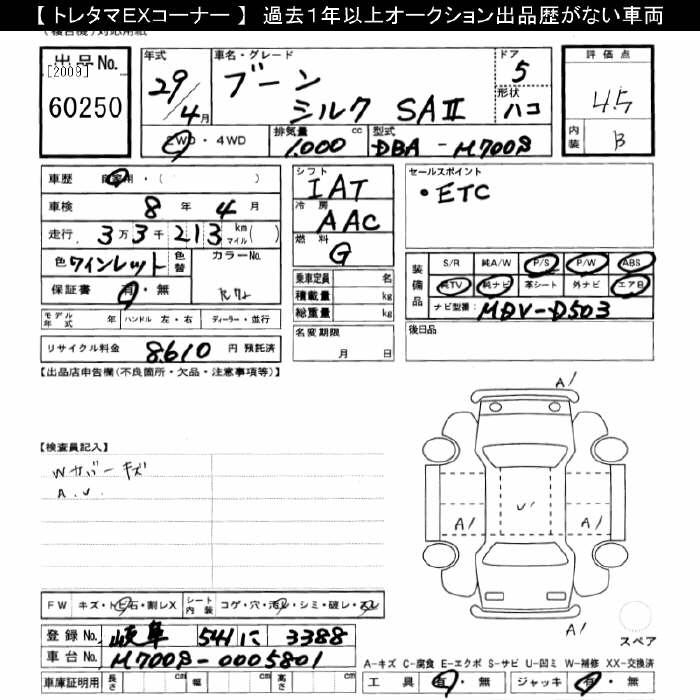 【 トレタマEXコーナー 】 過去1年以上オークション出品歴がない車両
出品No.
[2009]
60250
年式
29/4月
車名・グレード
ブーン
シルク SAⅡ
ドア
5
形状
ハコ
2WD・4WD
排気量
1,000 cc
型式
DBA-M700S
評価点
4.5
内装
B
車歴 自家用・( )
車検 8年 4月
走行 3万3千213 km マイル( )
色 ワインレット 色替 カラーNo.
保証書 有・無
シフト
IAT
冷房
AAC
燃料
G
乗車定員 名
積載量 kg
総重量 kg
名変期限
月 日
セールスポイント
・ETC
装備品
S/R 純A/W P/S P/W ABS
純TV 純ナビ 革シート 外ナビ エアB
ナビ型番: MDV-D503
後日品
モデル年式 年 ハンドル 左・右 ディーラー・並行
リサイクル料金 8,610 円 預託済
【出品店申告欄(不良箇所・欠品・注意事項等)】
【検査員記入】
Wカバーキズ
A.U.
A1
U1
A1
A1
A1
スペア
FW キズ・トビ石・割レX シート内装 コゲ・穴・汚レ・シミ・破レ・スレ
登録No. 岐阜 541 に 3388
車台No. M700S-0005801
車庫証明用 長さ cm 幅 cm 高さ cm
A-キズ C-腐食 E-エクボ S-サビ U-凹ミ W-補修 XX-交換済
工具 有・無 ジャッキ 有・無